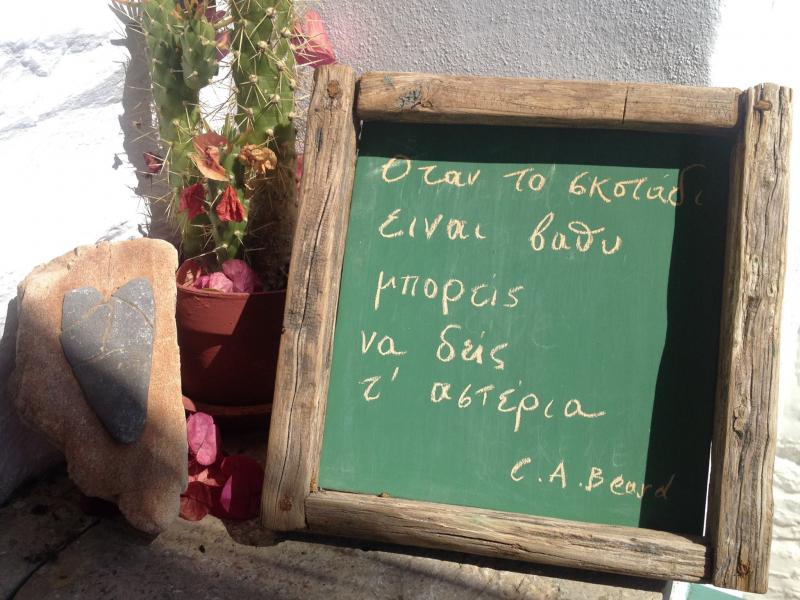 Οταν το σκοτάδι
ειναι βαθυ
μπορείς
να δείς
τ' αστέρια
C.A.Beard